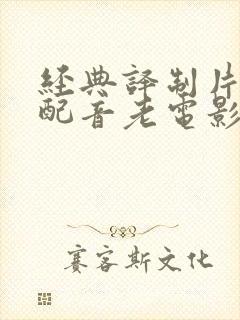 經典譯制片
配音老電影
賽客斯文化